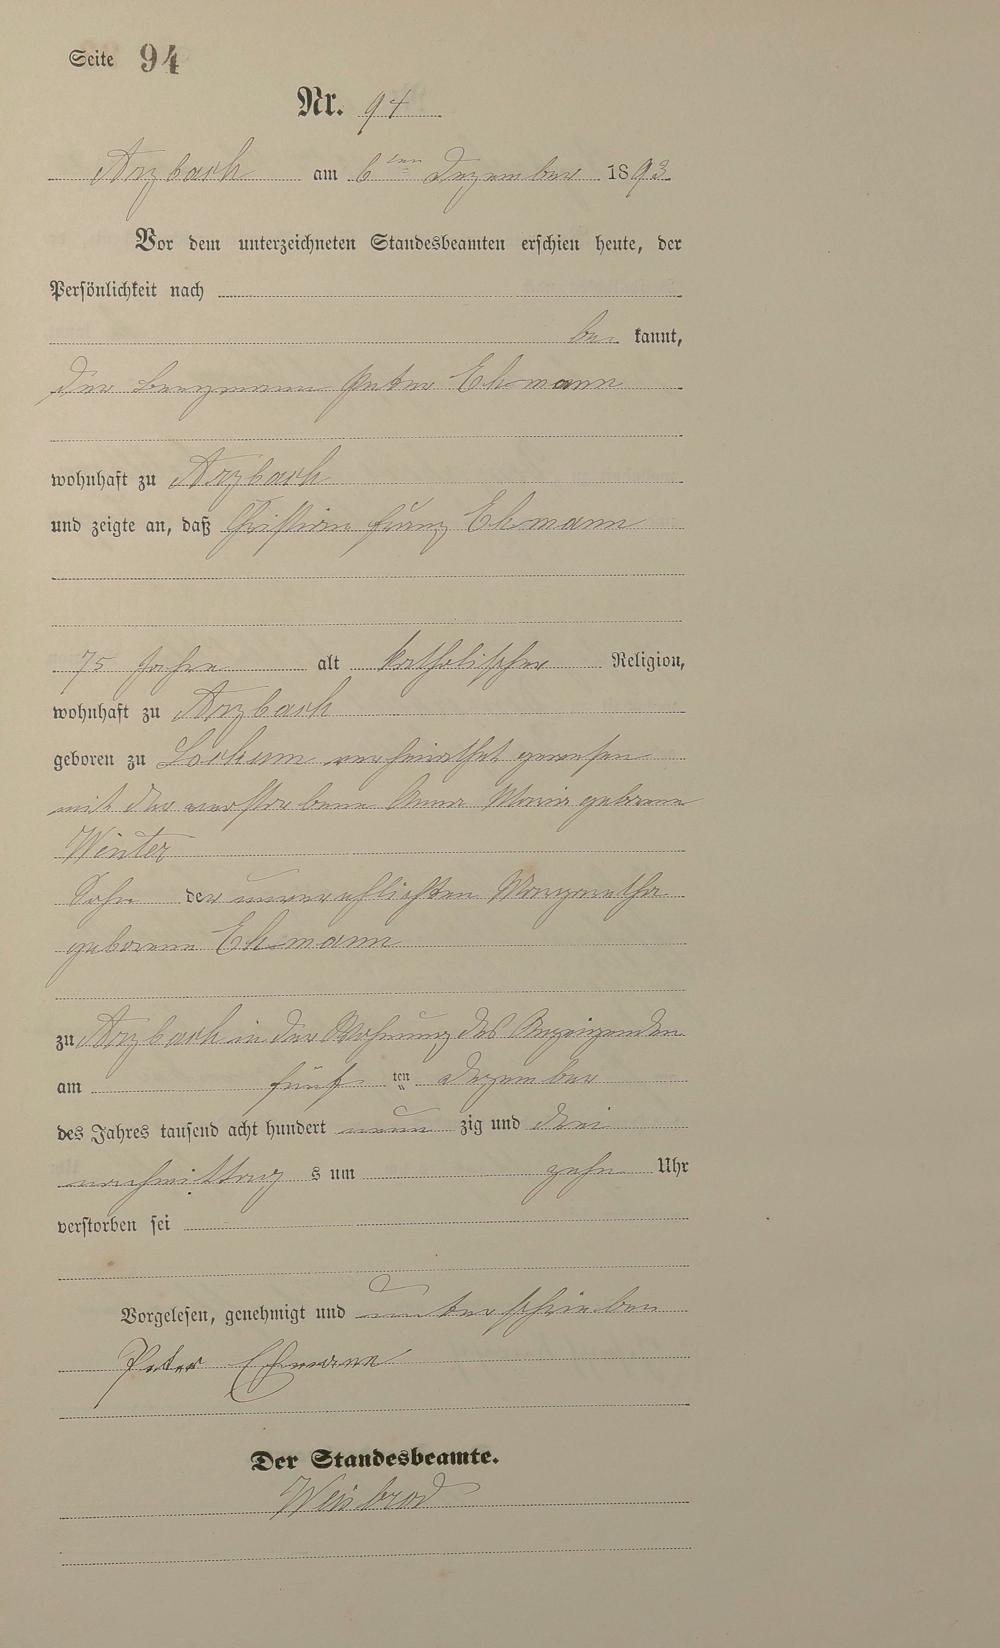 Seite 94
Nr. 94
Arzbach am 6ten Dezember 1893
Vor dem unterzeichneten Standesbeamten erschien heute, der
Persönlichkeit nach
be kannt,
der Bergmann Peter Ehmann
wohnhaft zu Arzbach
und zeigte an, daß Christian Franz Ehmann
75 Jahre alt katholischer Religion,
wohnhaft zu Arzbach
geboren zu verheirathet gewesen
mit der verstorbene Anna Maria geborene
Winter
Sohn der unverehlichten Margaretha
geborene Ehmann
zu Arzbach in der Wohnung des Anzeigenden
am fünf ten Dezember
des Jahres tausend acht hundert neun zig und drei
nachmittag s um zehn Uhr
verstorben sei
Vorgelesen, genehmigt und unterschrieben
Peter Ehmann
Der Standesbeamte.
Weisbrod